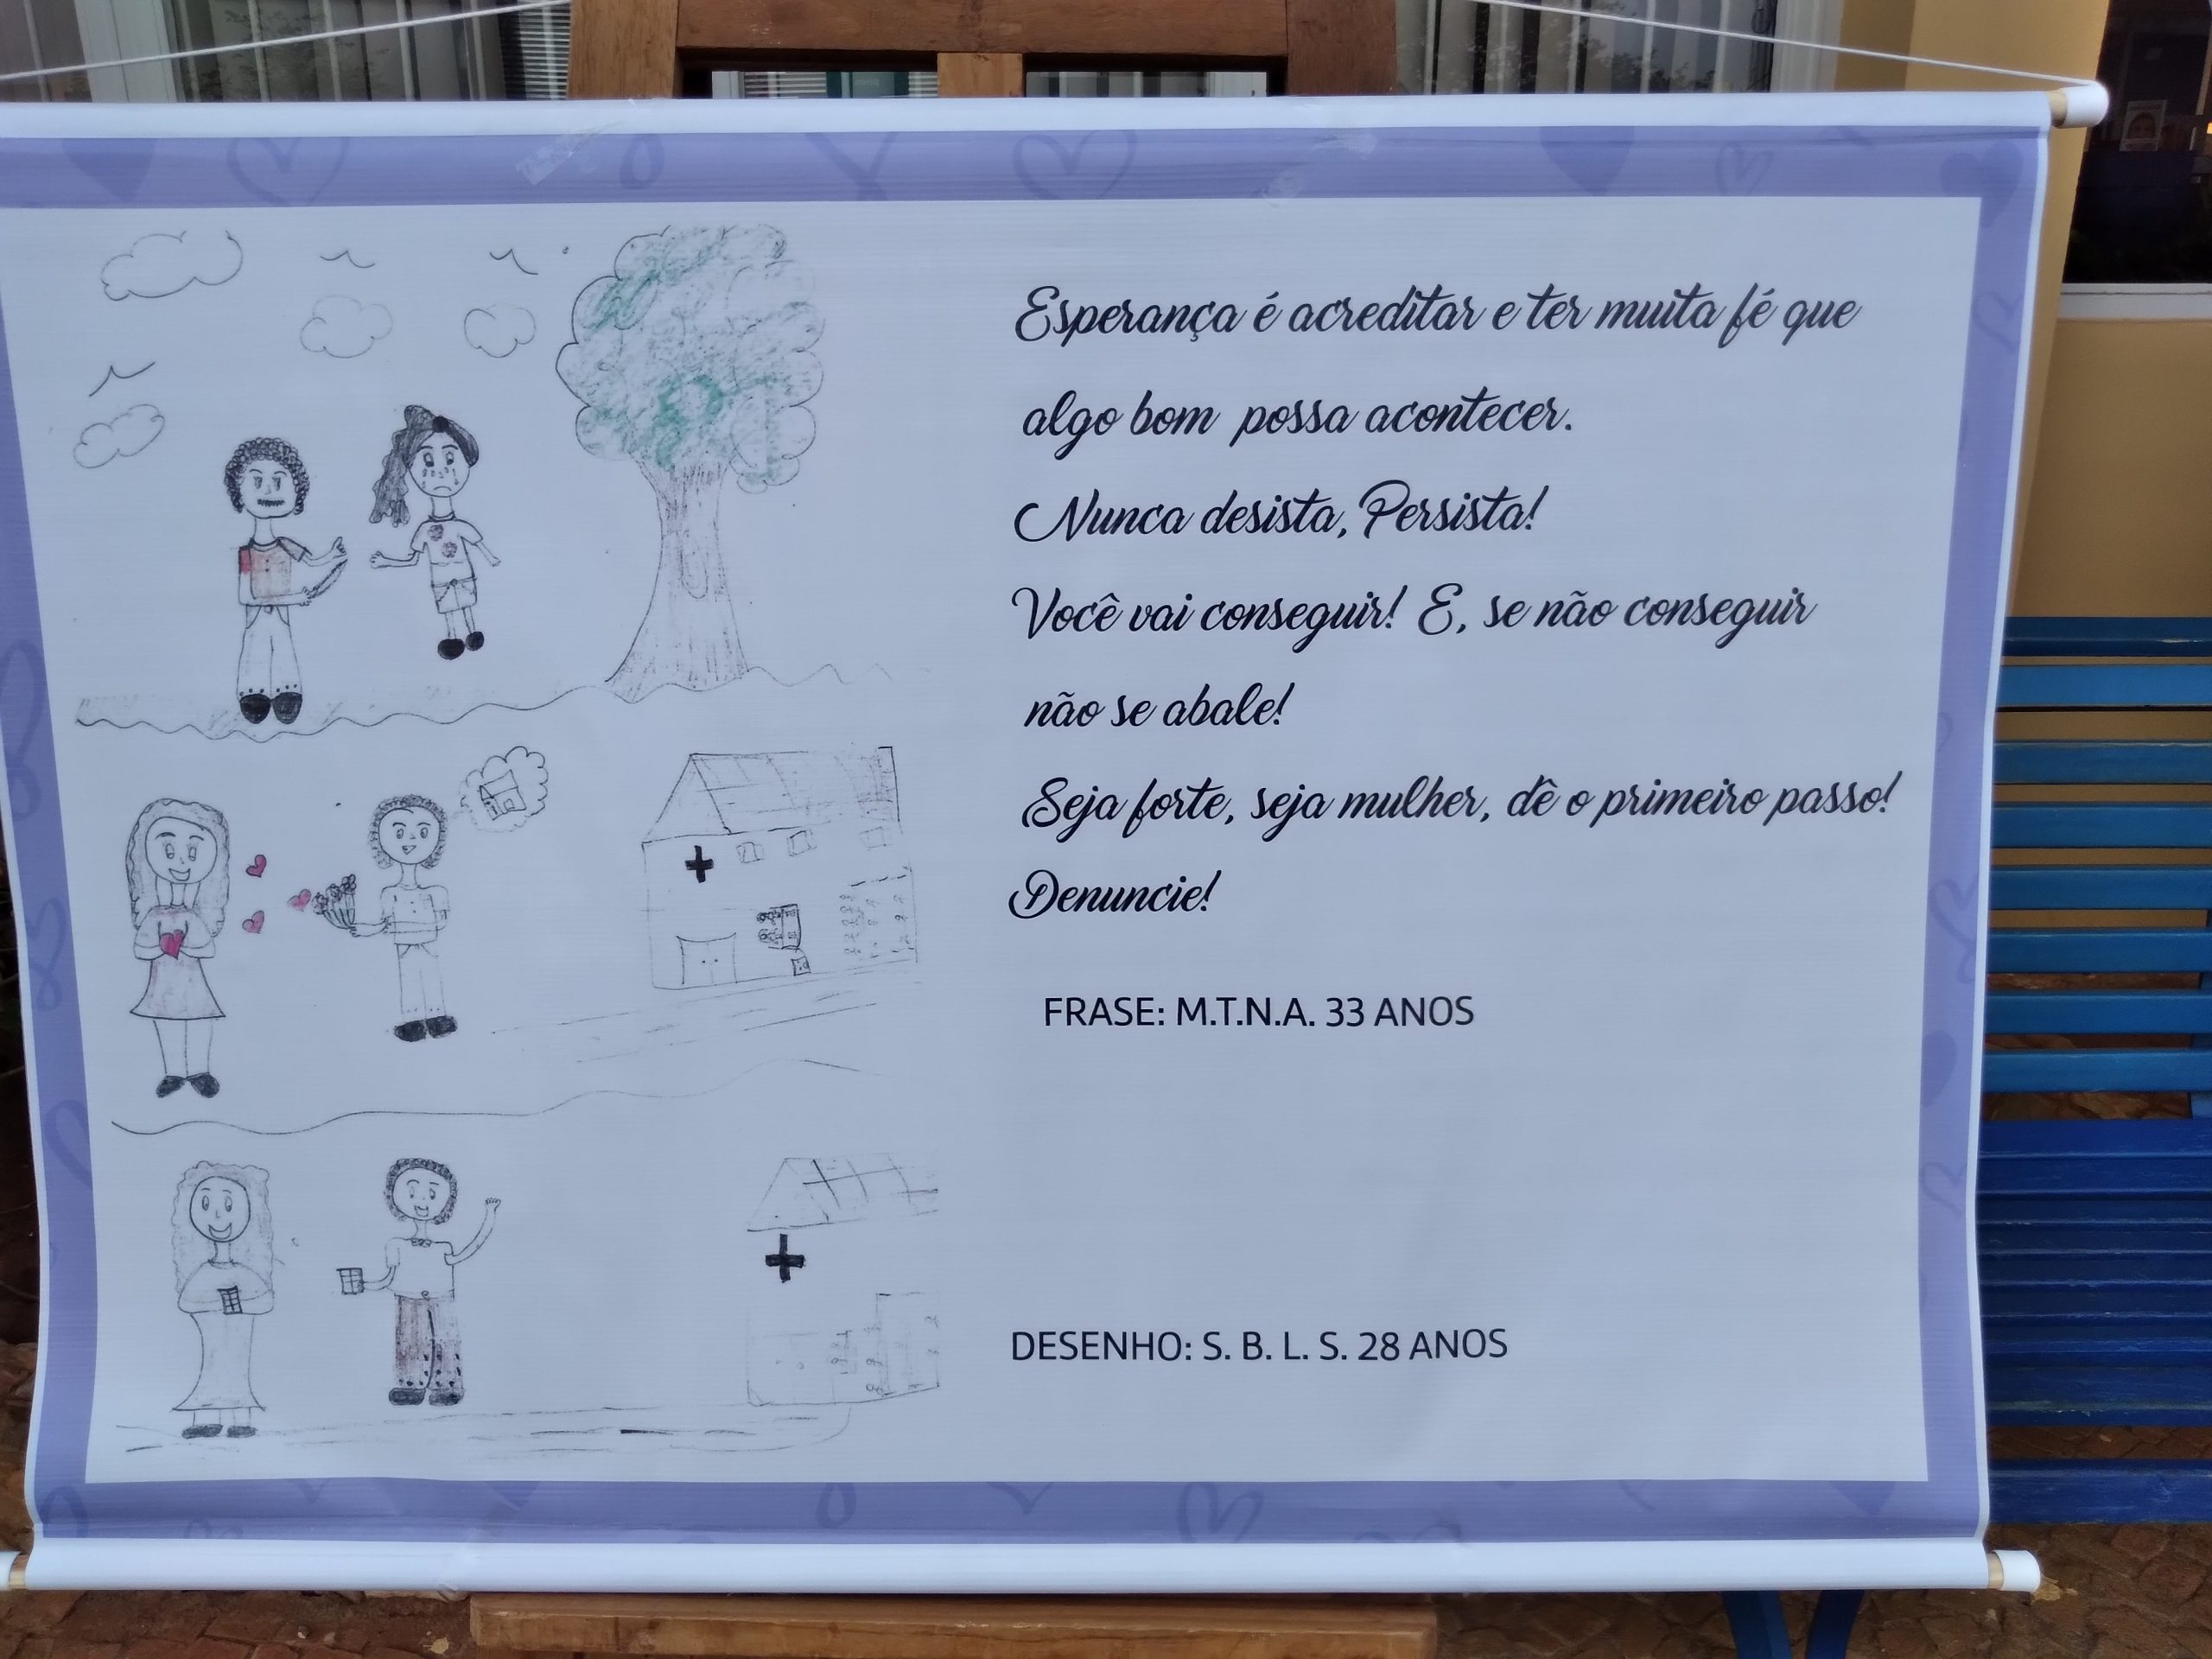 Esperança é acreditar e ter muita fé que
algo bom possa acontecer.
Nunca desista, Persista!
Você vai conseguir! E, se não conseguir
não se abale!
Seja forte, seja mulher, dê o primeiro passo!
Denuncie!
FRASE: M.T.N.A. 33 ANOS
DESENHO: S. B. L. S. 28 ANOS